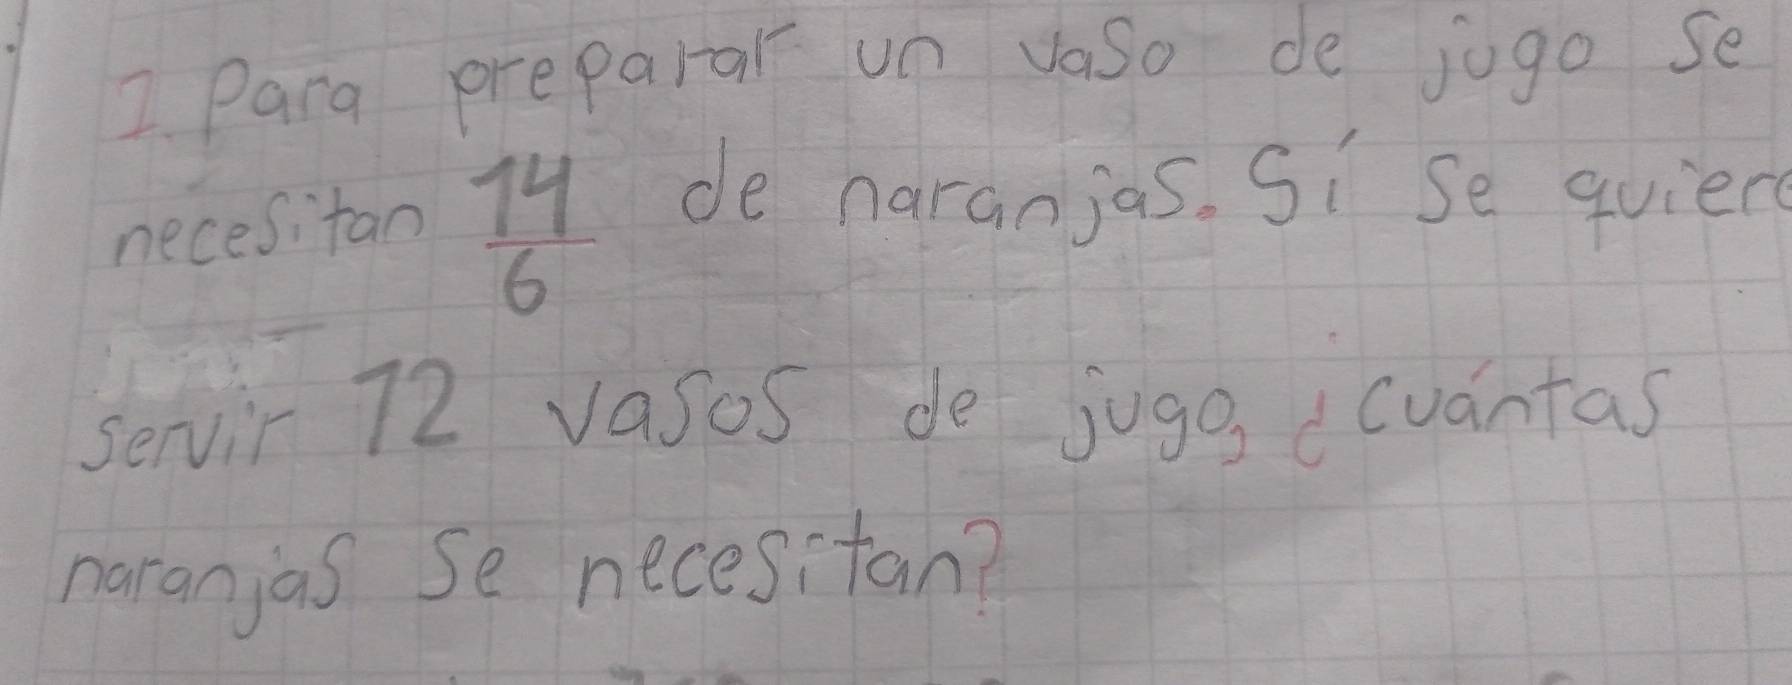 1. Para preparar un vaso de jugo se
necesitan 14/6 de naranjas. Sí se quiere
servir 12 vasos de jugo, ¿cuántas
naranjas se necesitan?